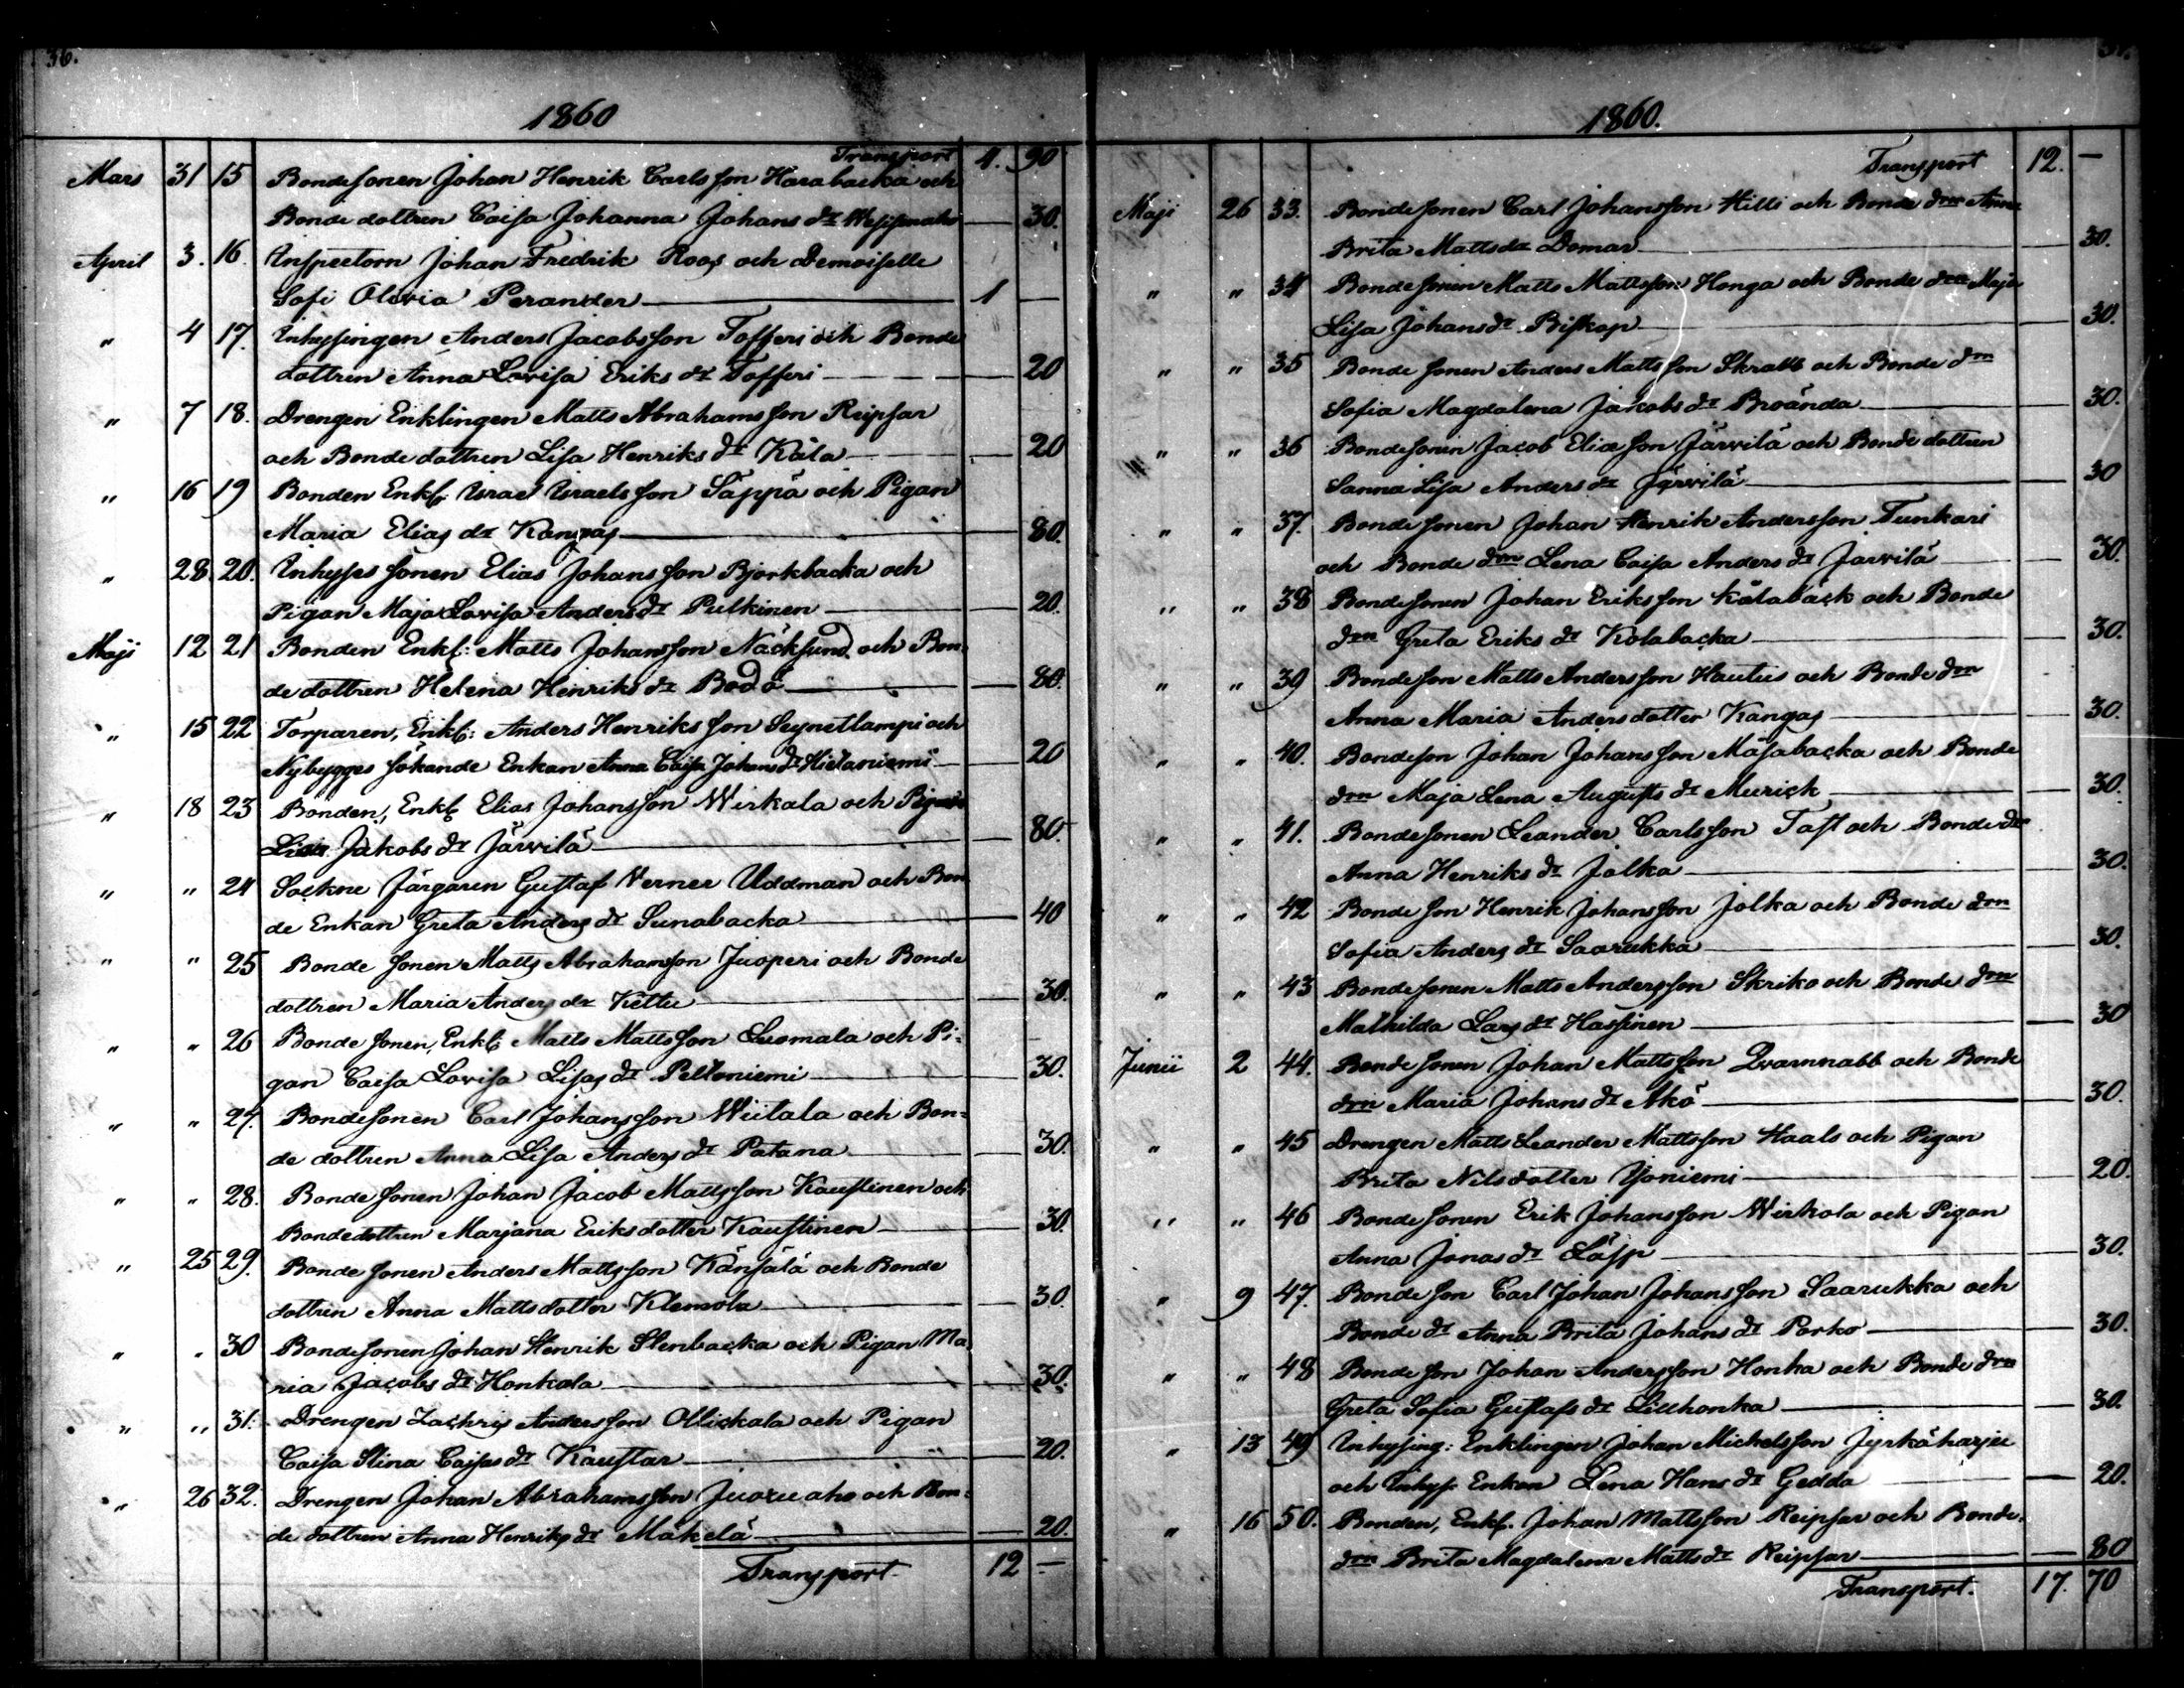 36.
1860
Transport 4. 90
Mars 31 15 Bondesonen Johan Henrik Carlsson Harabacka och
Bonde dottren Caisa Johanna Johans dr — 30.
April 3. 16. Inspectorn Johan Fredrik Roos och Demoiselle
Sofi Olivia Perander — 1 —
" 4 17. Inhysingen Anders Jacobsson Tofferi och Bonde
dottren Anna Lovisa Eriks dr Tofferi — 20
" 7 18. Drengen Enklingen Matts Abrahamsson Reipsar
och Bonde dottren Lisa Henriks dr Käla — 20
" 16 19 Bonden Enkl: Israel Israelsson Säppä och Pigan
Maria Elias dr Kangas — 80.
" 28. 20. Inhyses sonen Elias Johansson Bjorkbacka och
Pigan Maja Lovisa Anders dr Pulkinen — 20.
Maji 12 21 Bonden Enkl: Matts Johansson Näcksund och Bon-
de dottren Helena Henriks dr Bodö — 80.
" 15 22 Torparen, Enkl: Anders Henriksson Seynetlampi och
Nybygges sökande Enkan Anna Caisa Johans dr Hietaniemi — 20
" 18 23 Bonden, Enkl Elias Johansson Wirkala och Pigan
Lisa Jakobs dr Järvilä — 80.
" " 24 Sockne Färgaren Gustaf Verner Uddman och Bon
de Enkan Greta Anders dr Sunabacka — 40
" " 25 Bonde sonen Matts Abrahamsson Juoperi och Bonde
dottren Maria Anders dr Kettu — 30.
" " 26 Bonde sonen, Enkl: Matts Mattsson Luomala och Pi-
gan Caisa Lovisa Lisas dr Peltoniemi — 30.
" " 27. Bondesonen Carl Johansson Wiitala och Bon-
de dottren Anna Lisa Anders dr Patana — 30.
" " 28. Bonde sonen Johan Jacob Mattsson Kaustinen och
Bondedottren Marjana Eriksdotter Kaustinen — 30.
" 25 29. Bonde sonen Anders Mattsson Känsälä och Bonde
dottren Anna Mattsdotter Klemola — 30.
" " 30 Bondesonen Johan Henrik Stenbacka och Pigan Ma
ria Jacobs dr Honkala — 30.
" " 31. Drengen Zachris Andersson Ollickala och Pigan
Caisa Stina Caisas dr Kaustar — 20.
" 26 32. Drengen Johan Abrahamsson Juoruaho och Bon-
de dottren Anna Henriks dr Mäkelä — 20.
Transport. 12 —
37.
1860.
Transport 12. —
Maji 26 33. Bondesonen Carl Johansson Hilli och Bonde drn Anna
Brita Matts dr Domar — 30.
" " 34 Bonde sonen Matts Mattsson Honga och Bonde drn Maja
Lisa Johans dr Biskop — 30.
" " 35 Bonde sonen Anders Mattsson Skrabb och Bonde drn
Sofia Magdalena Jakobs dr Broända — 30.
" " 36 Bondesonen Jacob Eliasson Järvilä och Bonde dottren
Sanna Lisa Anders dr Järvilä — 30
" " 37. Bonde sonen Johan Henrik Andersson Tunkari
och Bonde drn Lena Caisa Anders dr Järvilä — 30.
" " 38 Bondesonen Johan Eriksson Kälabäck och Bonde
drn Greta Eriks dr Kolabacka — 30.
" " 39 Bondeson Matts Andersson Hautus och Bonde drn
Anna Maria Andersdotter Kangas — 30.
" " 40. Bondeson Johan Johansson Mäsabacka och Bonde
drn Maja Lena Augusts dr Murick — 30.
" " 41. Bonde sonen Leander Carlsson Tast och Bonde dr
Anna Henriks dr Jolka — 30.
" " 42 Bonde son Henrik Johansson Jolka och Bonde drn
Sofia Anders dr Saarukka — 30.
" " 43 Bonde sonen Matts Andersson Skriko och Bonde drn
Mathilda Lars dr Hassinen — 30
Junii 2 44. Bonde sonen Johan Mattsson Qvarnnabb och Bonde
drn Maria Johans dr Åkö — 30.
" " 45 Drengen Matts Leander Mattsson Haals och Pigan
Brita Nilsdotter Yoniemi — 20.
" " 46 Bonde sonen Erik Johansson Wirkola och Pigan
Anna Jonas dr Läsp — 30.
" 9 47. Bonde son Carl Johan Johansson Saarukka och
Bonde dr Anna Brita Johans dr Porko — 30.
" " 48 Bonde son Johan Andersson Honka och Bonde drn
Greta Sofia Gustafs dr Lillhonka — 30.
" 13 49 Inhysing: Enklingen Johan Michelsson Jyrkäharju
och Inhys. Enkan Lena Hans dr Gedda — 20.
" 16 50. Bonden, Enkl. Johan Mattsson Reipsar och Bonde
drn Brita Magdalena Matts dr Reipsar — 80
Transport. 17. 70